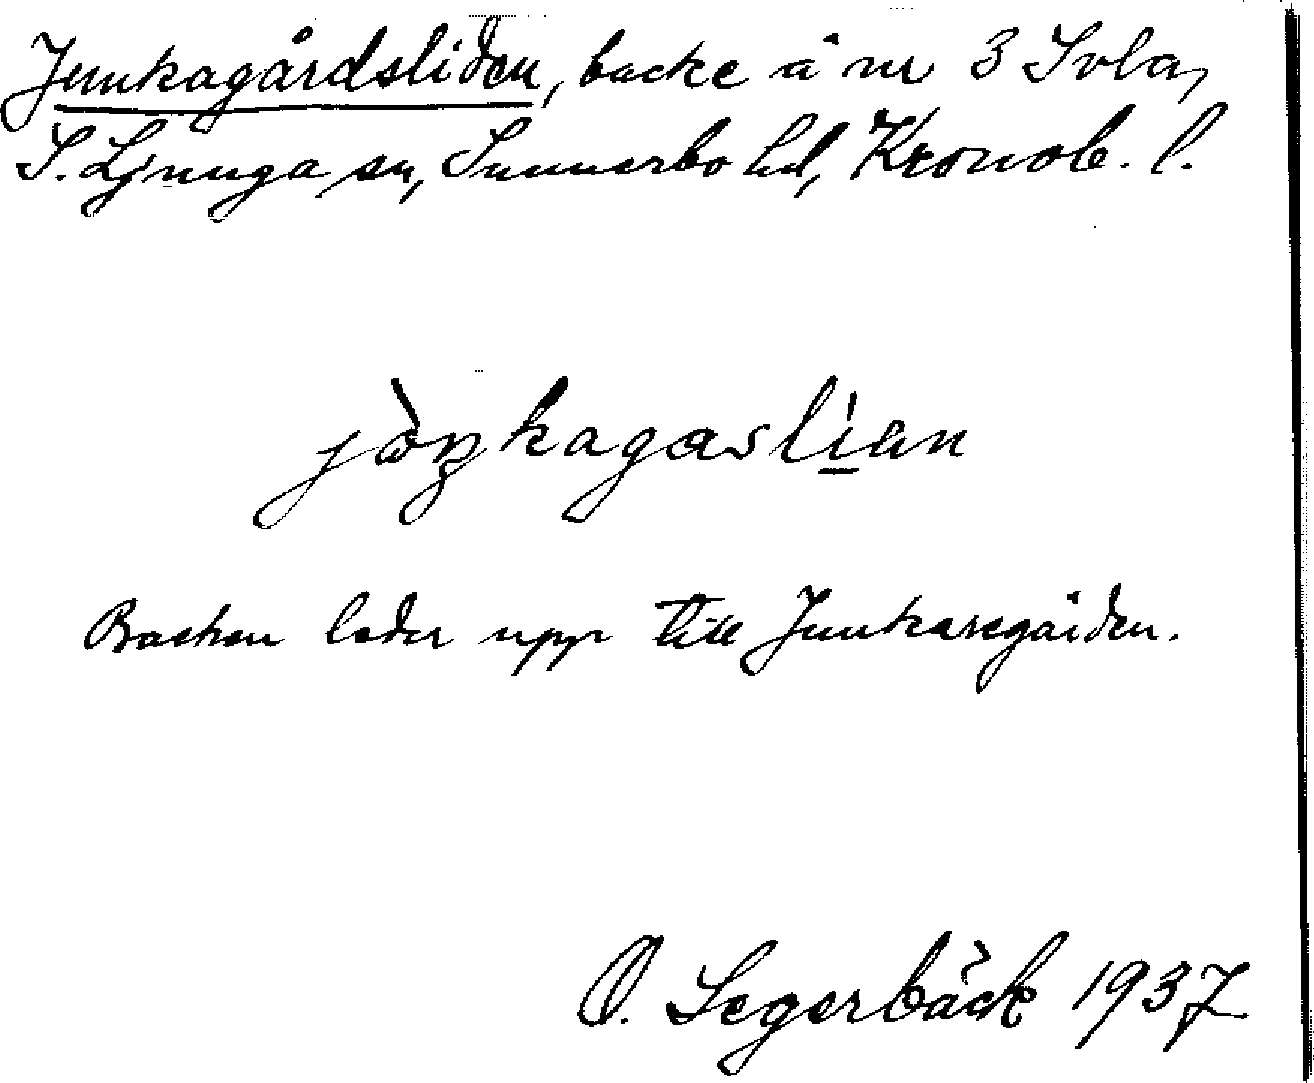 Junkagårdsliden, backe å nr 3 Svla,
S. Ljunga sn, Sunnerbo hd, Kronob. l.
jòŋkagaslian
Backen leder upp till Junkaregården.
O. Segerbäck 1937